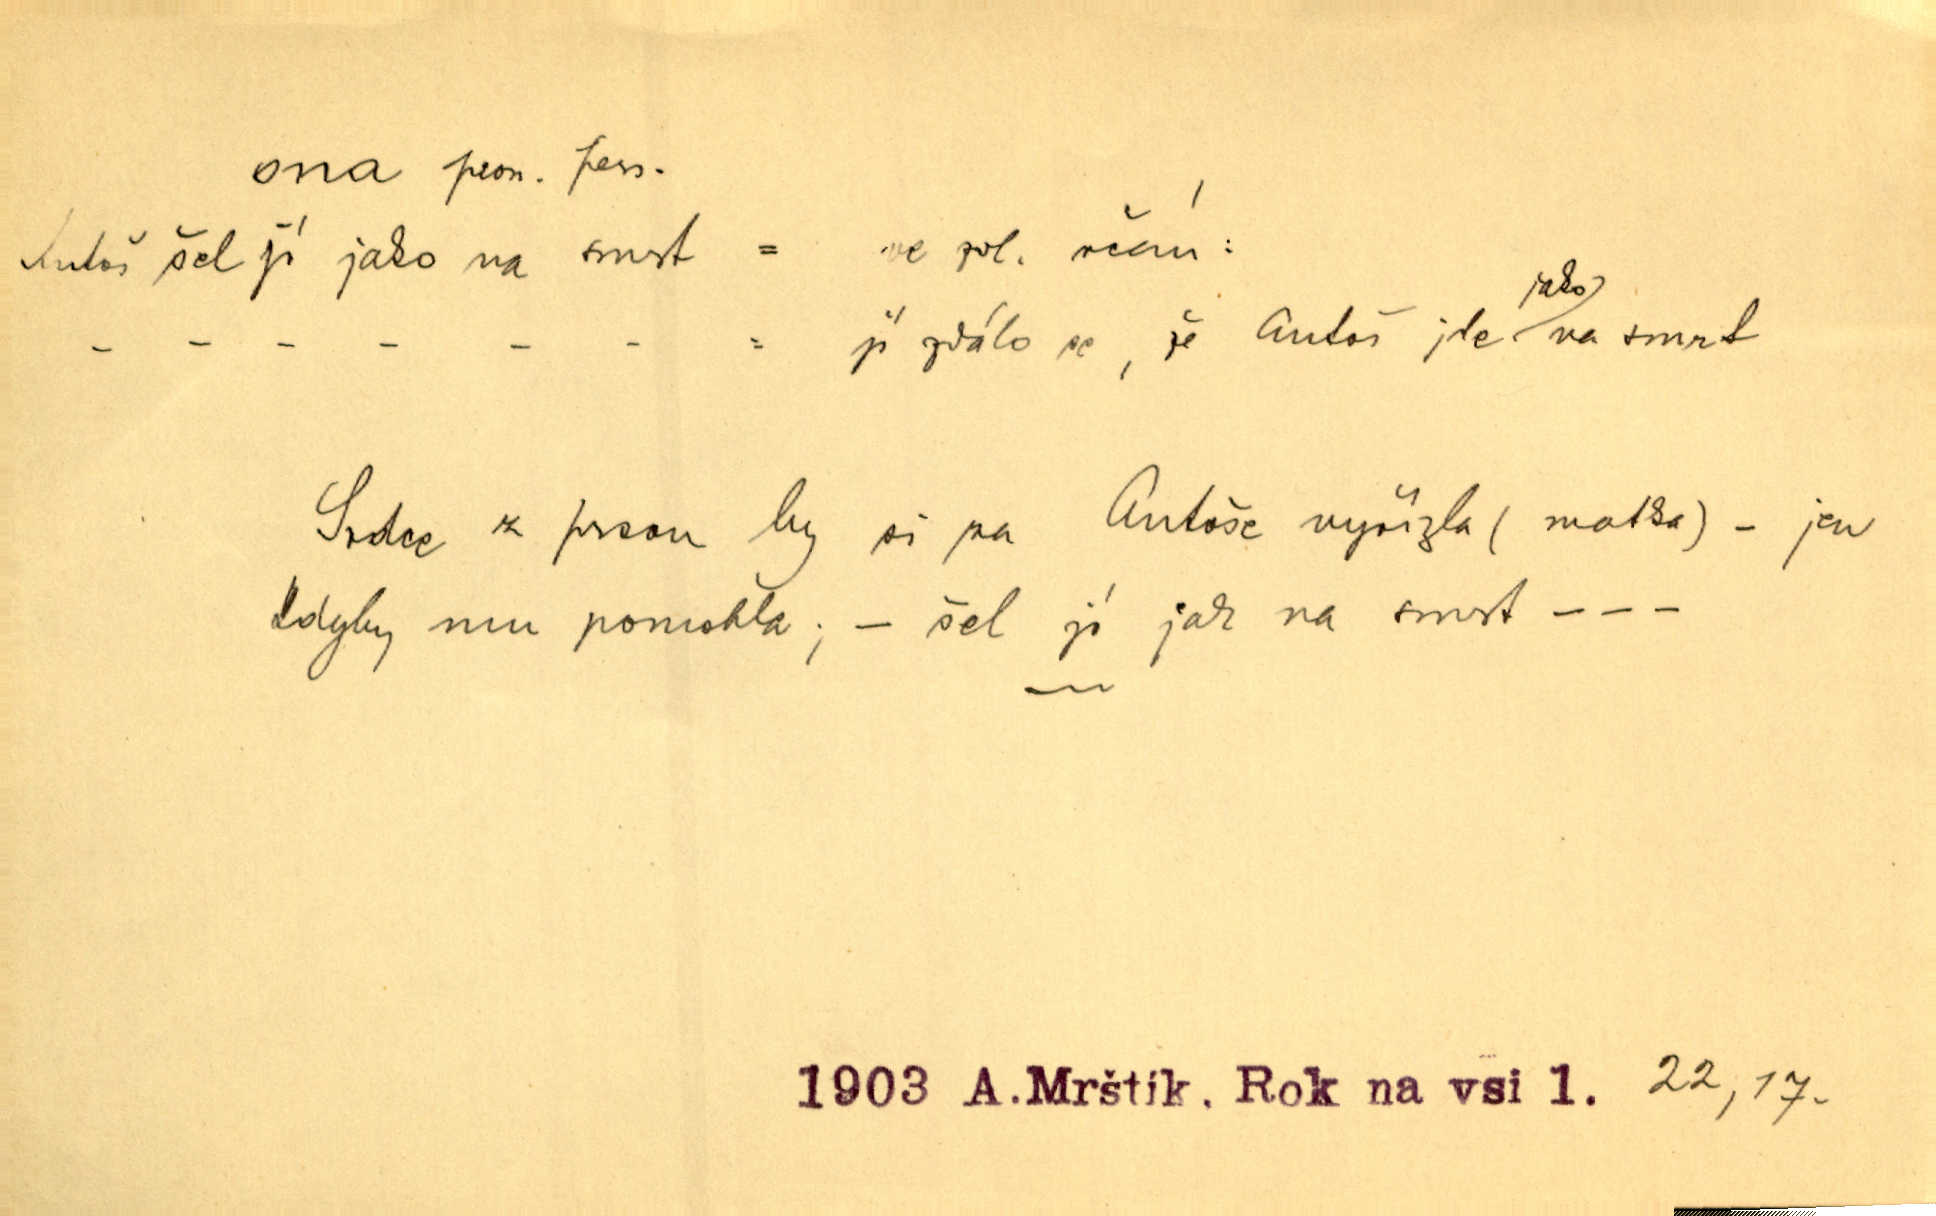 ona pron. pers.
Antoš šel jí jako na smrt = ve zvl. rčení:
- - - - - - = jí zdálo se, že Antoš jde jako na smrt
Srdce z prsou by si pa Antoše vyřízla (matka) - jen
kdyby mu pomohla; - šel jí jak na smrt - - -
1903 A. Mrštík. Rok na vsi 1. 22, 17.